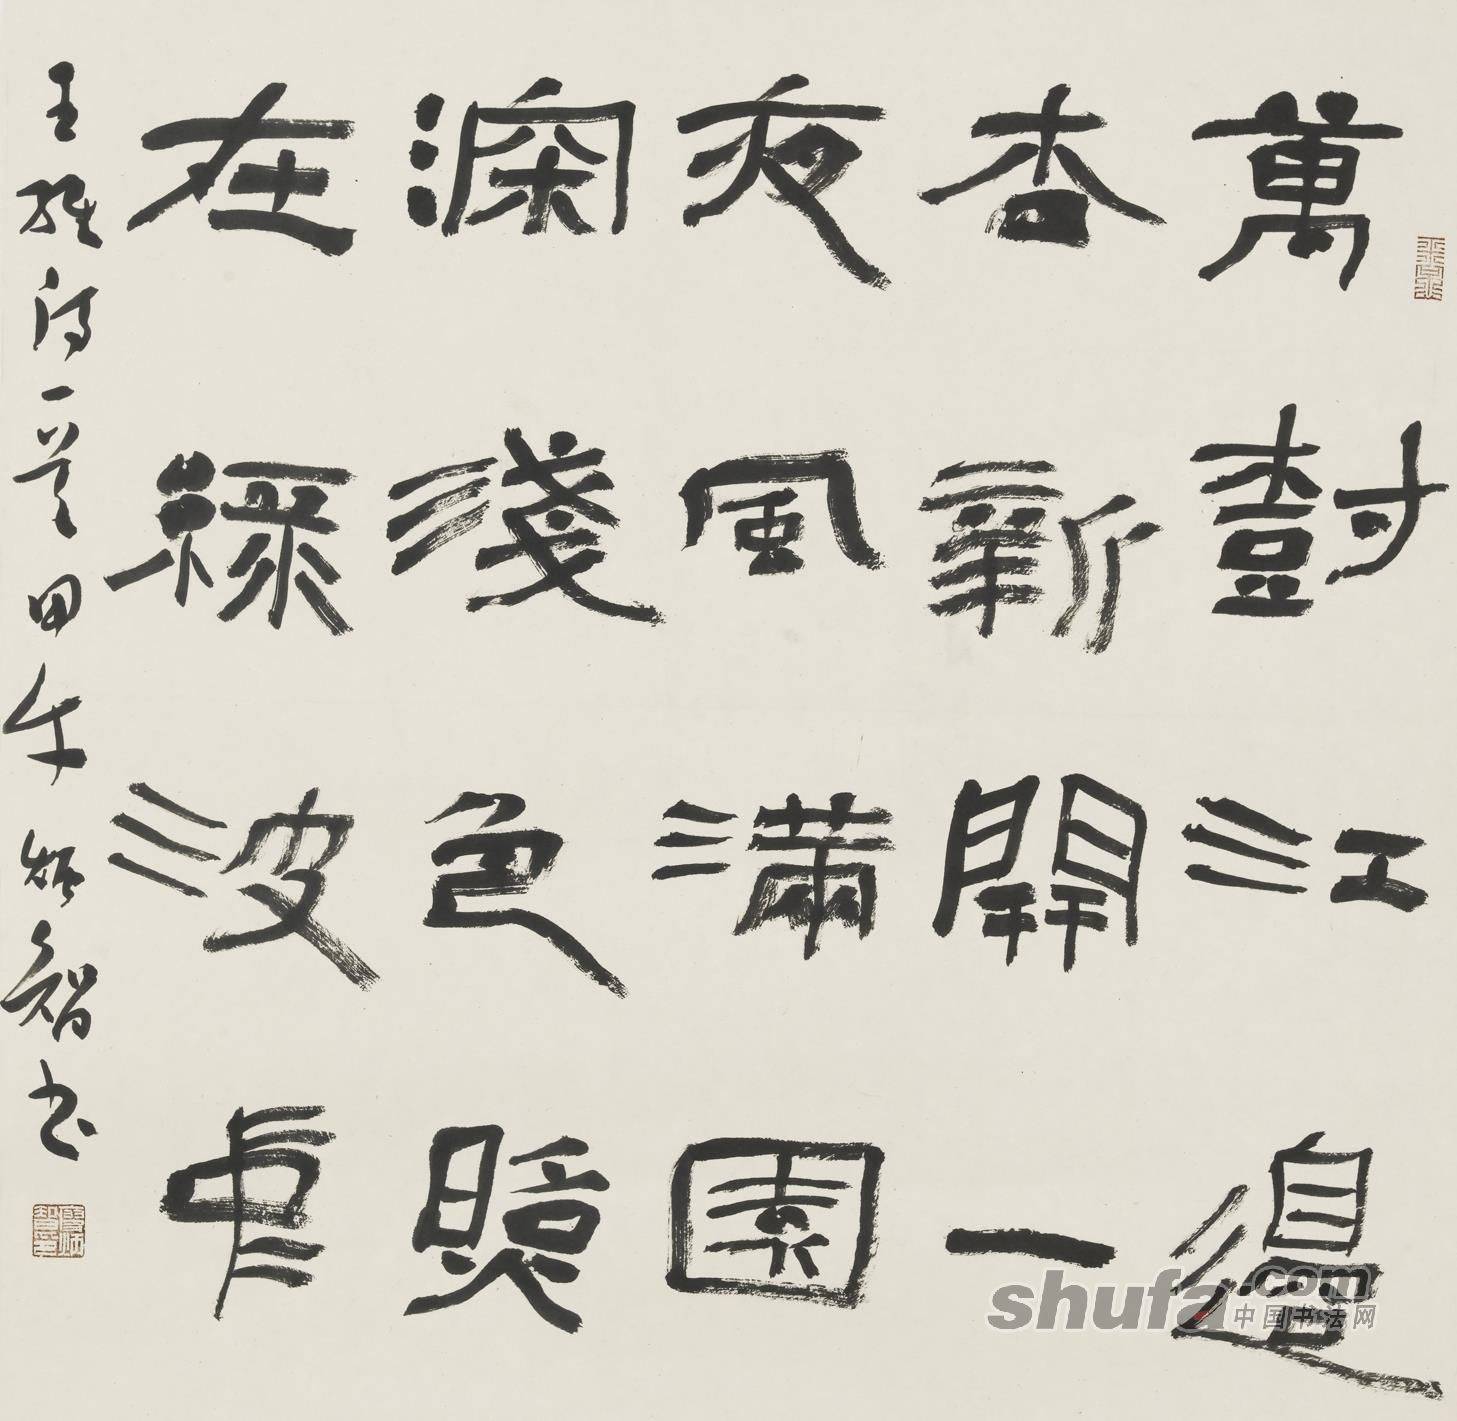 萬樹江邊
杏新開一
夜風滿園
深淺色照
在綠波中
王維詩一首甲午炳智书
shufa.com
中国书法网